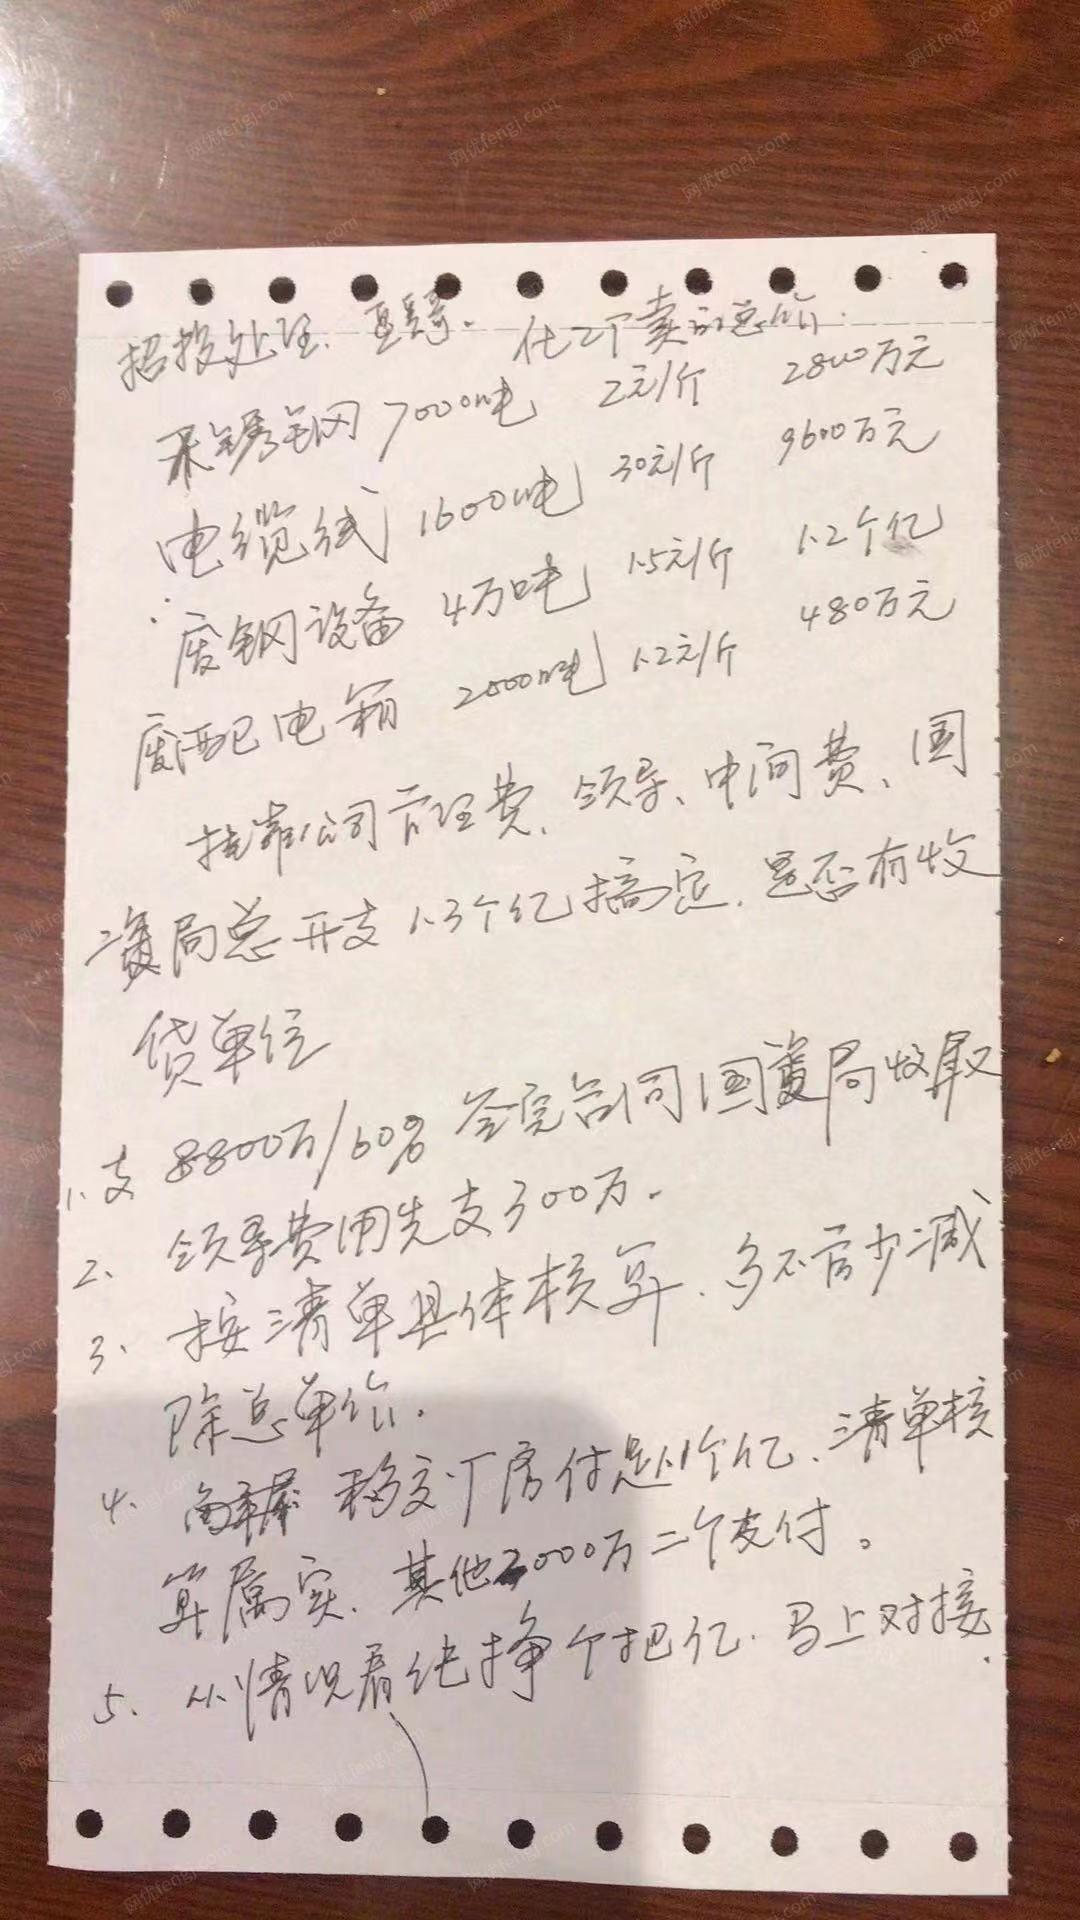 招投处理. 化工厂卖的总价.
不锈钢 7000吨 2元/斤 2800万元
电缆线 1600吨 30元/斤 9600万元
废钢设备 4万吨 1.5元/斤 1.2个亿
废配电箱 2000吨 1.2元/斤 480万元
挂靠公司管理费、领导、中间费、国
资局总开支1.3个亿搞定.是否有收
货单位
1.支 8800万/60% 签完合同国资局收取
2、领导费用先支300万.
3、按清单具体核算、多不管少减
除总单价.
4、移交厂房付足1个亿、清单核
算属实、其他3000万二个支付。
5、从情况看纯挣个把亿.马上对接.
网优fengj.com